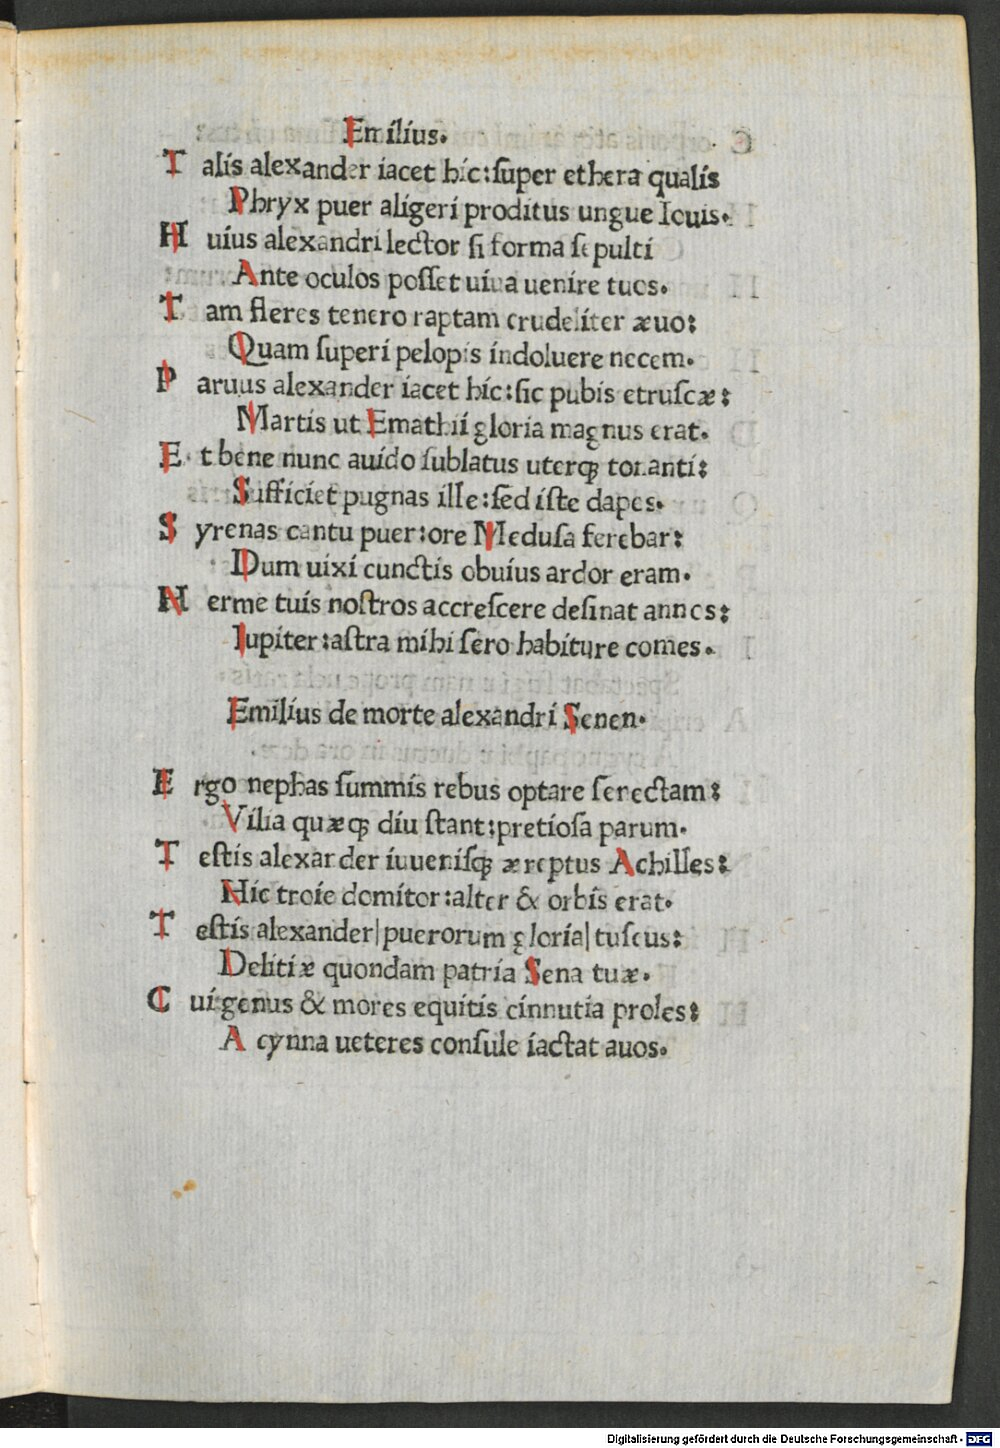 Emilius.
Talis alexander iacet hic:ſuper ethera qualis
Phryx puer aligeri proditus ungue Iouis.
Huius alexandri lector ſi forma ſepulti
Ante oculos poſſet uiua uenire tuos.
Tam fleres tenero raptam crudeliter æuo:
Quam ſuperi pelopis indoluere necem.
Paruus alexander iacet hic:ſic pubis etruſcæ:
Martis ut Emathii gloria magnus erat.
Et bene nunc auido ſublatus uterqꝫ tonanti:
Sufficiet pugnas ille:ſed iſte dapes.
Syrenas cantu puer:ore Meduſa ferebar:
Dum uixi cunctis obuius ardor eram.
Nerme tuis noſtros accreſcere deſinat annos:
Iupiter:aſtra mihi ſero habiture comes.
Emilius de morte alexandri Senen.
Ergo nephas ſummis rebus optare ſenectam:
Vilia quæqꝫ diu ſtant:pretioſa parum.
Teſtis alexander iuueniſqꝫ æreptus Achilles:
Hic troie domitor:alter & orbis erat.
Teſtis alexander|puerorum gloria|tuſcus:
Delitiæ quondam patria Sena tuæ.
Cui genus & mores equitis cinnutia proles:
A cynna ueteres conſule iactat auos.
Digitalisierung gefördert durch die Deutsche Forschungsgemeinschaft - DFG